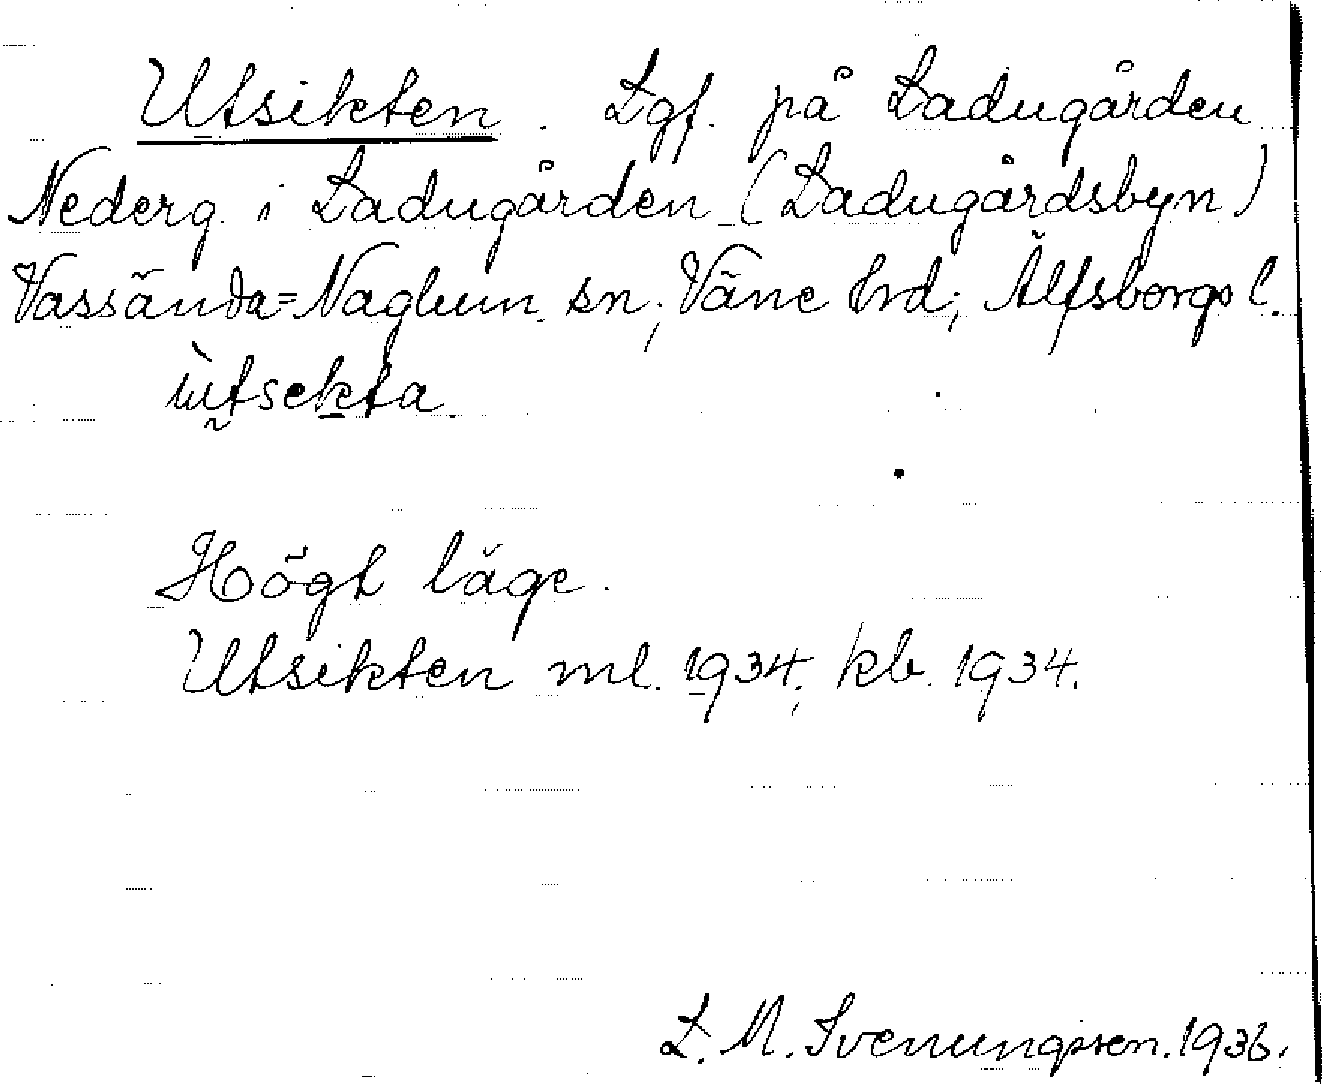 Utsikten. Lgf. på Ladugården
Nederg. i Ladugården (Ladugårdsbyn)
Vassända=Naglum sn; Väne hrd; Älfsborgs l.
ùtsekta.
Högt läge.
Utsikten ml. 1934; kb. 1934.
L. M. Svenungsson. 1936.